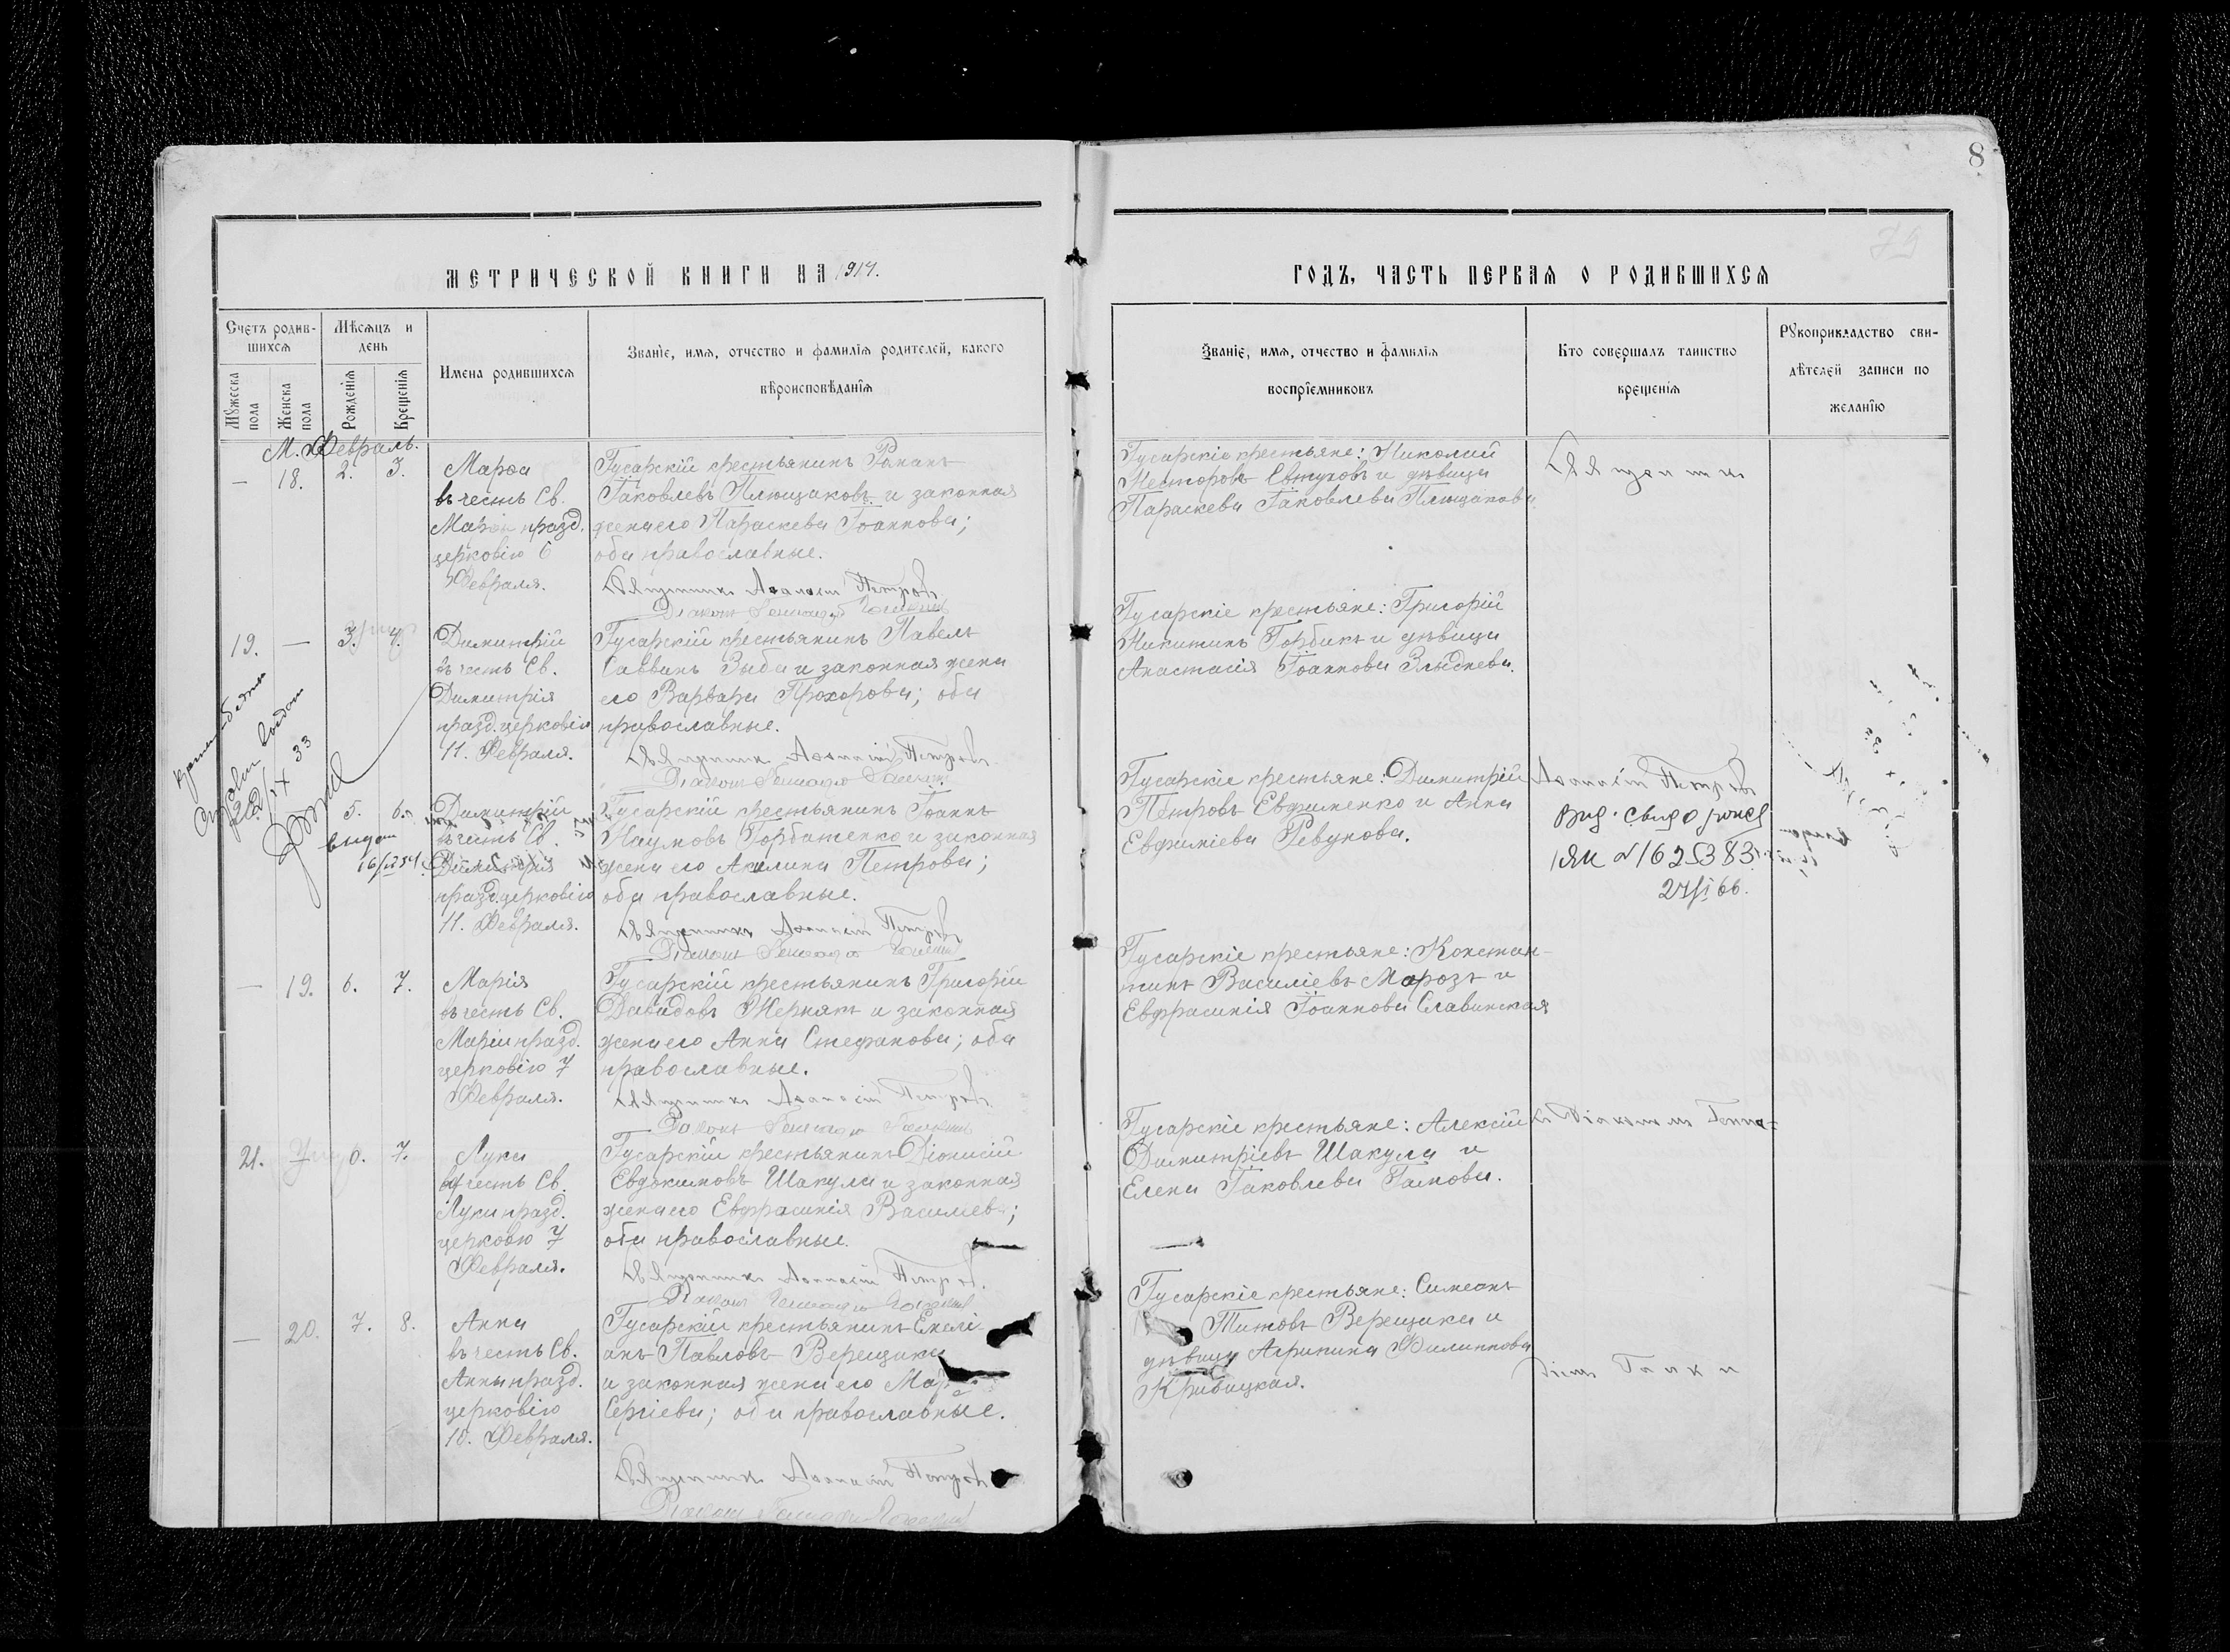 8
МЕТРИЧЕСКОЙ КНИГИ НА 1914.
Счетъ родив-
шихся
Мѣсяцъ и
день
Имена родившихся
Званіе, имя, отчество и фамилія родителей, какого
вѣроисповѣданія
Мужеска
пола
Женска
пола
Рожденія
Крещенія
М. Февраль.
— 18. 2. 3.
Марѳа
въ честь Св.
Марѳы празд.
церковію 6
Февраля.
Гусарскій крестьянинъ Романъ
Іаковлевъ Плющаковъ и законная
жена его Параскева Іоаннова;
оба православные.
Священникъ Аѳанасій Петровъ
Діаконъ
19. — 3. 4.
Димитрій
въ честь Св.
Димитрія
празд. церковію
11. Февраля.
Гусарскій крестьянинъ Павелъ
Саввинъ Зыба и законная жена
его Варвара Прохорова; оба
православные.
Священникъ Аѳанасій Петровъ
Діаконъ
5. 6.
Димитрій
въ честь Св.
Димитрія
празд. церковію
11. Февраля.
Гусарскій крестьянинъ Іоаннъ
Наумовъ Горбатенко и законная
жена его Акилина Петрова;
оба православные.
Священникъ Аѳанасій Петровъ
Діаконъ
— 19. 6. 7.
Марія
въ честь Св.
Маріи празд.
церковію 7
Февраля.
Гусарскій крестьянинъ Григорій
Давидовъ Жернякъ и законная
жена его Анна Стефанова; оба
православные.
Священникъ Аѳанасій Петровъ
Діаконъ
21. 7.
Лука
въ честь Св.
Луки празд.
церковію 7
Февраля.
Гусарскій крестьянинъ Діонисій
Евдокимовъ Шакула и законная
жена его Евфрасинія Василіева;
оба православные.
Священникъ Аѳанасій Петровъ
Діаконъ
— 20. 7. 8.
Анна
въ честь Св.
Анны празд.
церковію
10. Февраля.
Гусарскій крестьянинъ Емелі
анъ Павловъ Верещака
и законная жена его
Сергіева; оба православные.
Священникъ Аѳанасій Петровъ
Діаконъ
ГОДЪ, ЧАСТЬ ПЕРВАЯ О РОДИВШИХСЯ
Званіе, имя, отчество и фамилія
воспріемниковъ
Кто совершалъ таинство
крещенія
Рукоприкладство сви-
дѣтелей записи по
желанію
Гусарскіе крестьяне: Николай
Несторовъ Евтуховъ и дѣвица
Параскева Іаковлева Плющакова
Священникъ
Гусарскіе крестьяне: Григорій
Никитинъ Горбикъ и дѣвица
Анастасія Іоаннова Злыднева.
Гусарскіе крестьяне: Димитрій
Петровъ Евфименко и Анна
Евфиміева Ревунова.
Аѳанасій Петровъ
1625383
66.
Гусарскіе крестьяне: Констан-
тинъ Василіевъ Морозъ и
Евфрасинія Іоаннова Славинская
Гусарскіе крестьяне: Алексій
Димитріевъ Шакула и
Елена Іаковлева Гамова.
съ Діакономъ Генна-
Гусарскіе крестьяне: Симеонъ
Титовъ Верещака и
дѣвица Агрипина Филиппова
Кривицкая.